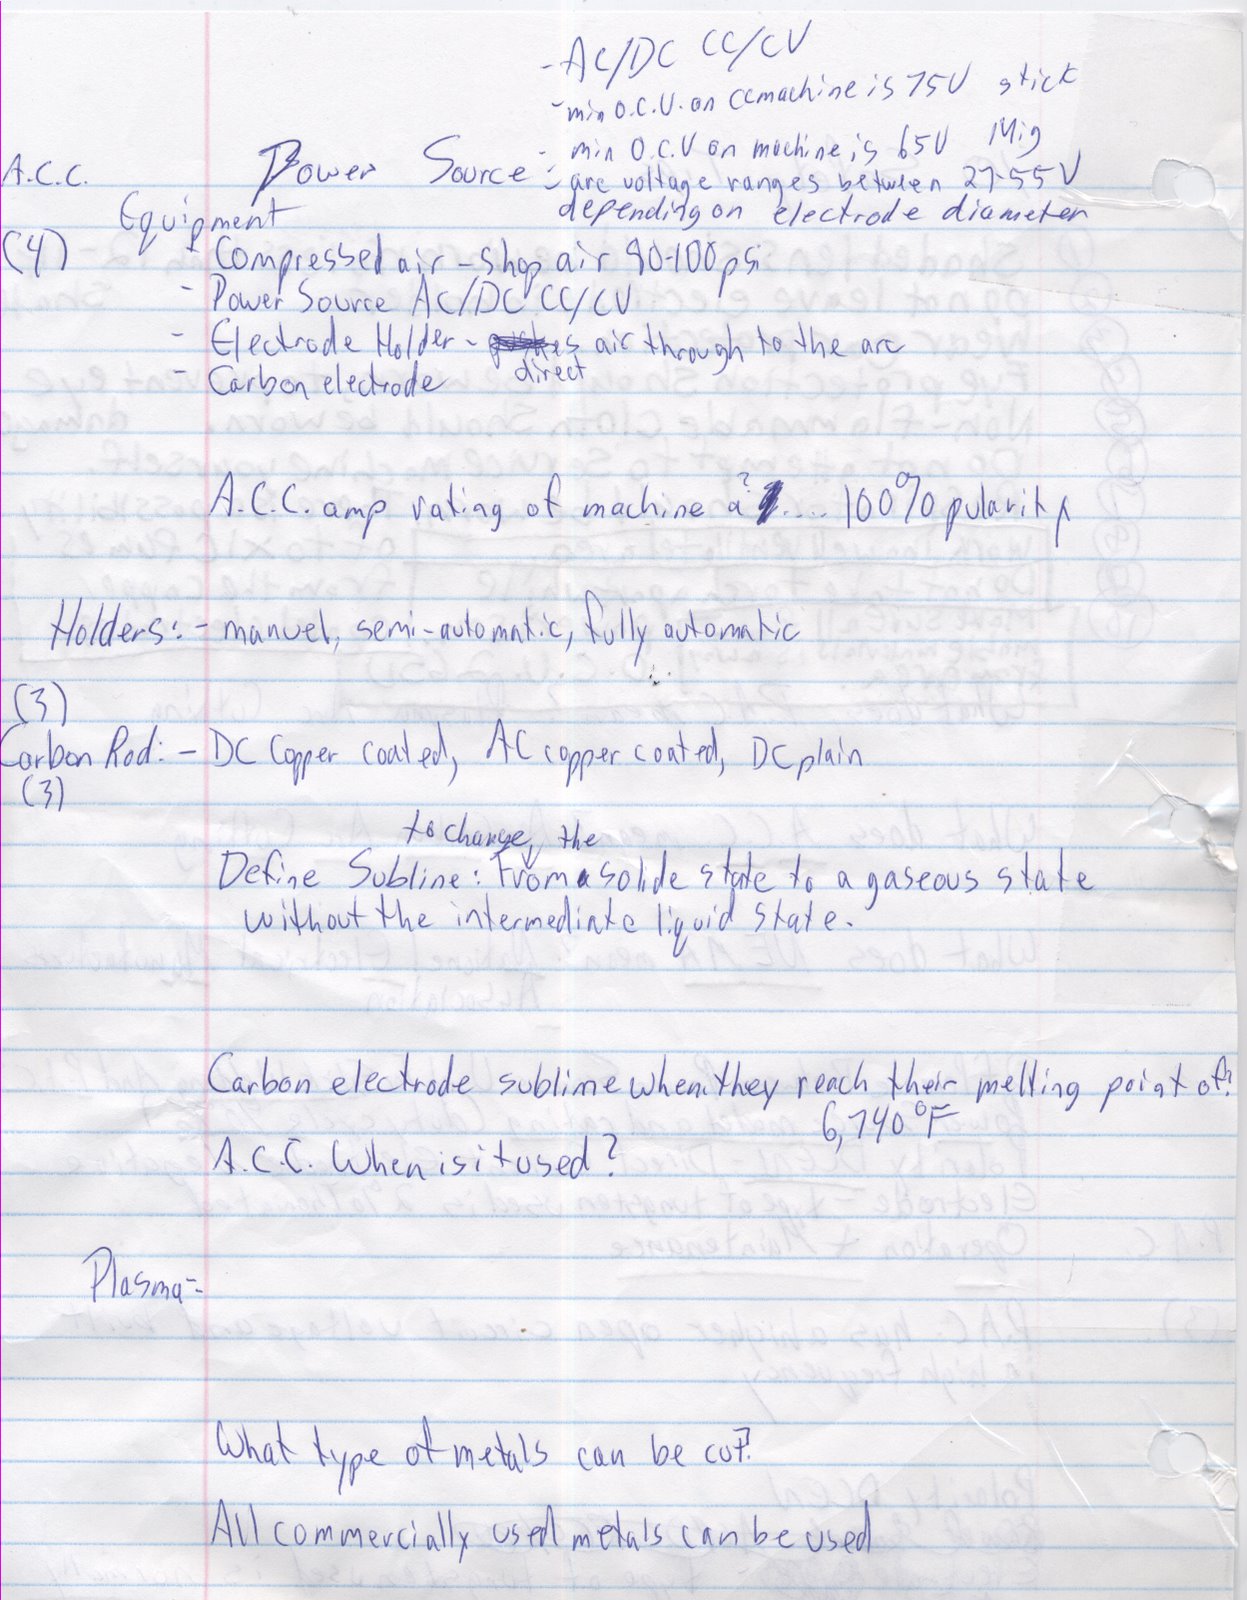 - AC/DC CC/CV
- min O.C.V. on cc machine is 75V stick
- min O.C.V on machine is 65V Mig
A.C.C. Power Source - arc voltage ranges between 27-55V
depending on electrode diameter
Equipment
(4) - Compressed air - shop air 90-100 psi
- Power Source AC/DC CC/CV
- Electrode Holder - air through to the arc
direct
- Carbon electrode
A.C.C. amp rating of machine a? .... 100% pularity
Holders: - manuel, semi-automatic, fully automatic
(3)
Carbon Rod: - DC Copper coated, AC copper coated, DC plain
(3)
to change, the
Define Subline: From a solide state to a gaseous state
without the intermediate liquid state.
Carbon electrode sublime when they reach their melting point of?
6,740°F
A.C.C. When is it used?
Plasma -
What type of metals can be cut?
All commercially used metals can be used